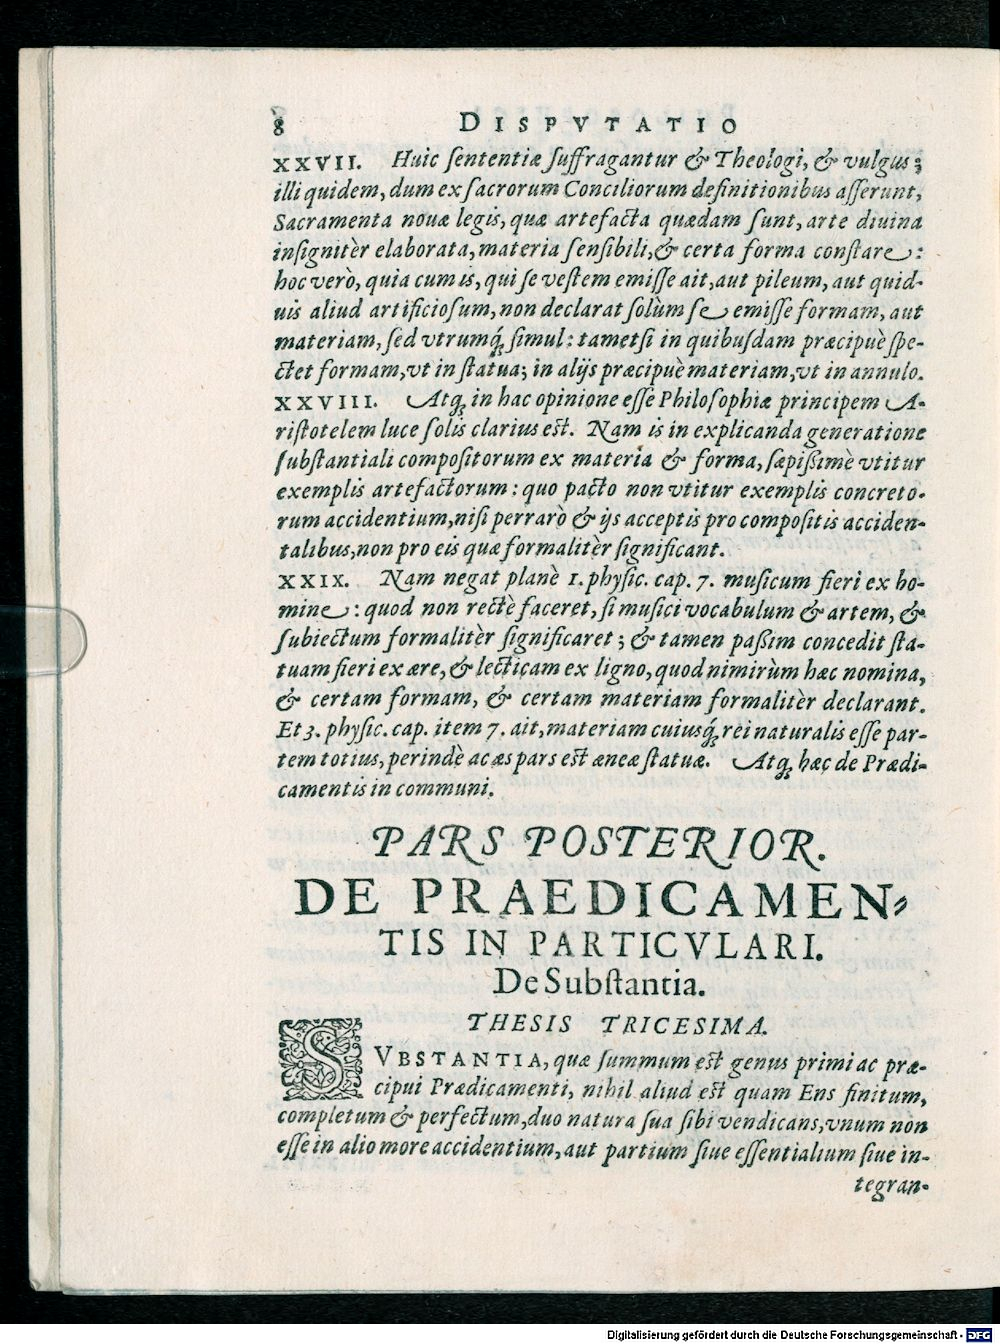 8 DISPVTATIO
XXVII. Huic sententiæ suffragantur & Theologi, & vulgus;
illi quidem, dum ex sacrorum Conciliorum definitionibus asserunt,
Sacramenta nouæ legis, quæ artefacta quædam sunt, arte diuina
insignitèr elaborata, materia sensibili, & certa forma constare:
hoc verò, quia cum is, qui se vestem emisse ait, aut pileum, aut quid-
uis aliud artificiosum, non declarat solùm se emisse formam, aut
materiam, sed vtrumq́; simul: tametsi in quibusdam præcipuè spe-
ctet formam, vt in statua; in alijs præcipuè materiam, vt in annulo.
XXVIII. Atq; in hac opinione esse Philosophiæ principem A-
ristotelem luce solis clarius est. Nam is in explicanda generatione
substantiali compositorum ex materia & forma, sæpißimè vtitur
exemplis artefactorum: quo pacto non vtitur exemplis concreto-
rum accidentium, nisi perrarò & ijs acceptis pro compositis acciden-
talibus, non pro eis quæ formalitèr significant.
XXIX. Nam negat planè 1. physic. cap. 7. musicum fieri ex ho-
mine: quod non rectè faceret, si musici vocabulum & artem, &
subiectum formalitèr significaret; & tamen paßim concedit sta-
tuam fieri ex ære, & lecticam ex ligno, quod nimirùm hæc nomina,
& certam formam, & certam materiam formalitèr declarant.
Et 3. physic. cap. item 7. ait, materiam cuiusq́; rei naturalis esse par-
tem totius, perindè ac æs pars est æneæ statuæ. Atq; hæc de Prædi-
camentis in communi.
PARS POSTERIOR.
DE PRAEDICAMEN-
TIS IN PARTICVLARI.
De Substantia.
THESIS TRICESIMA.
SVBSTANTIA, quæ summum est genus primi ac præ-
cipui Prædicamenti, nihil aliud est quam Ens finitum,
completum & perfectum, duo natura sua sibi vendicans, vnum non
esse in alio more accidentium, aut partium siue essentialium siue in-
tegran-
Digitalisierung gefördert durch die Deutsche Forschungsgemeinschaft - DFG